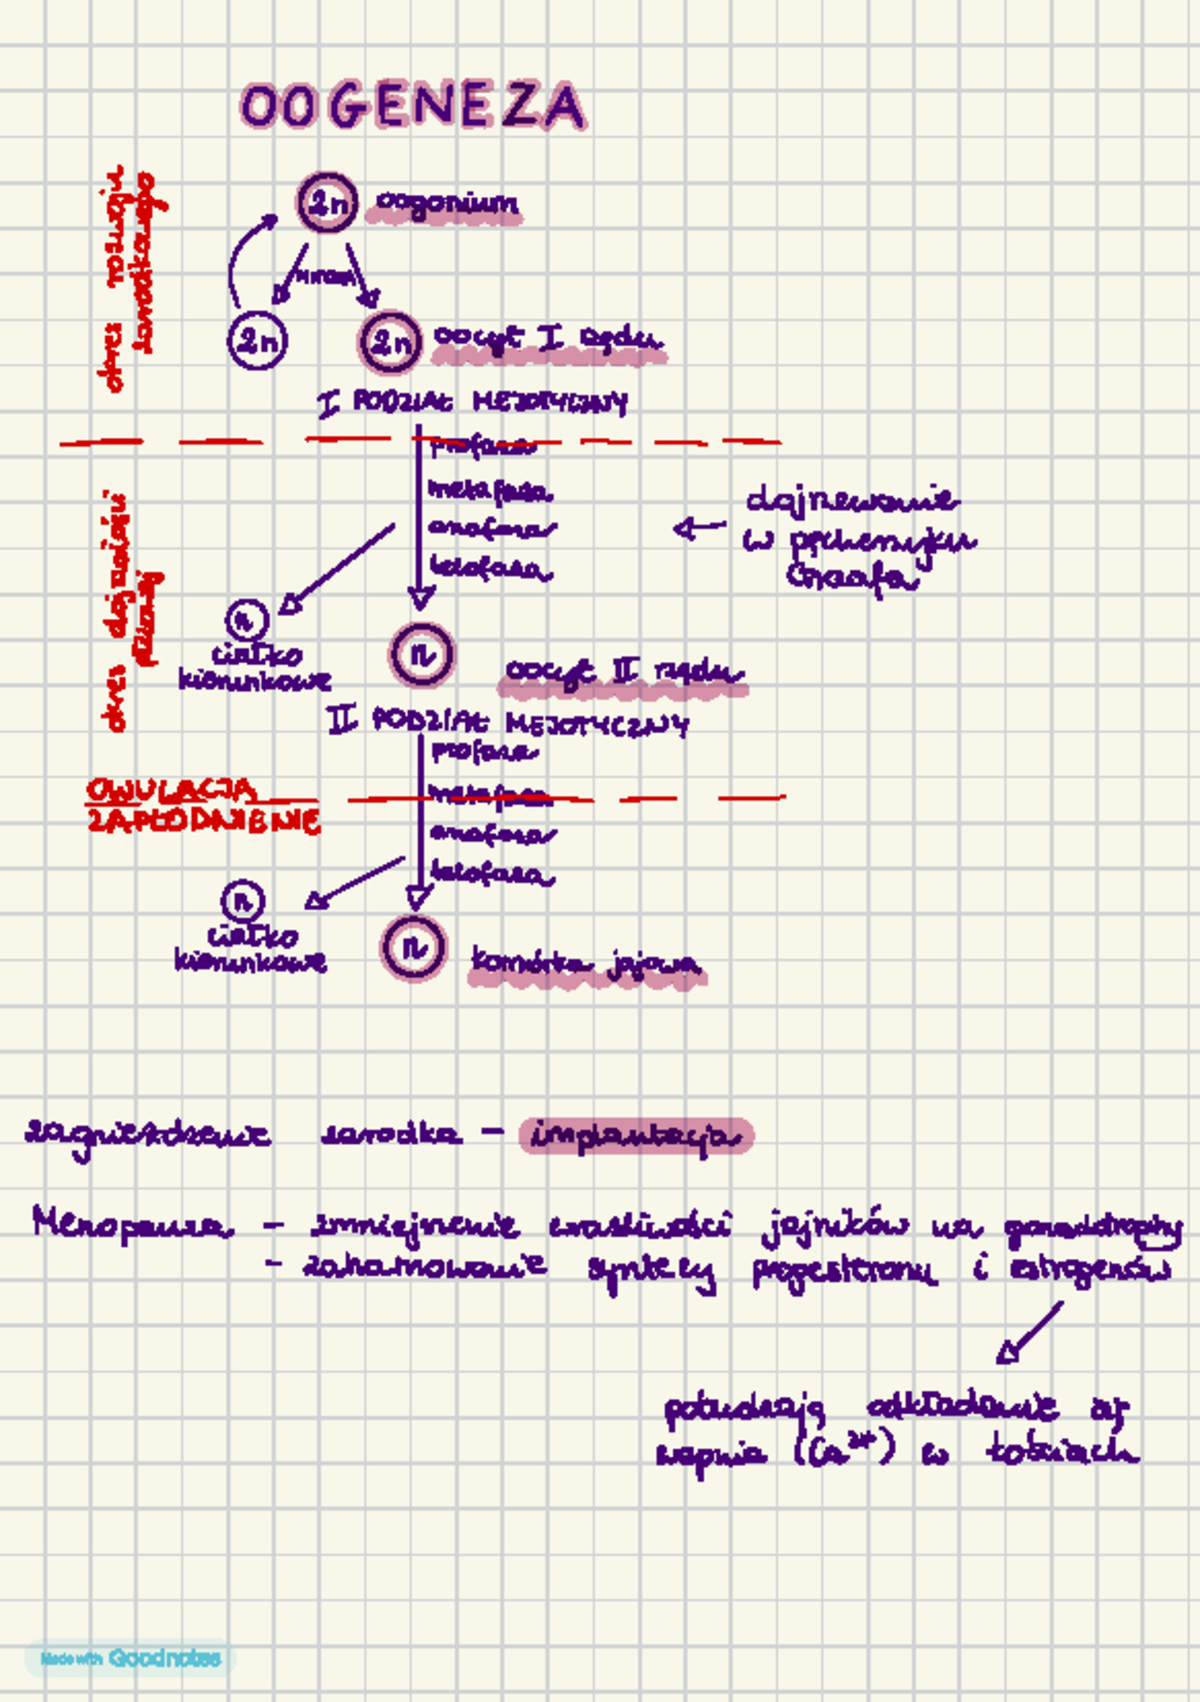 OOGENEZA
okres rozwoju
zarodkowego
2n oogonium
MITOZA
2n 2n oocyt I rzędu
I PODZIAŁ MEJOTYCZNY
profaza
metafaza
anafaza
telofaza
dojrzewanie
w pęcherzyku
Graafa
okres dojrzałości
płciowej
n
ciałko
kierunkowe
n
oocyt II rzędu
II PODZIAŁ MEJOTYCZNY
profaza
OWULACJA
metafaza
ZAPŁODNIENIE
anafaza
telofaza
n
ciałko
kierunkowe
n
komórka jajowa
zagnieżdżenie zarodka - implantacja
Menopauza - zmniejszenie wrażliwości jajników na gonadotropiny
- zahamowanie syntezy progesteronu i estrogenów
pobudzają odkładanie się
wapnia (Ca²⁺) w kościach
Made with Goodnotes